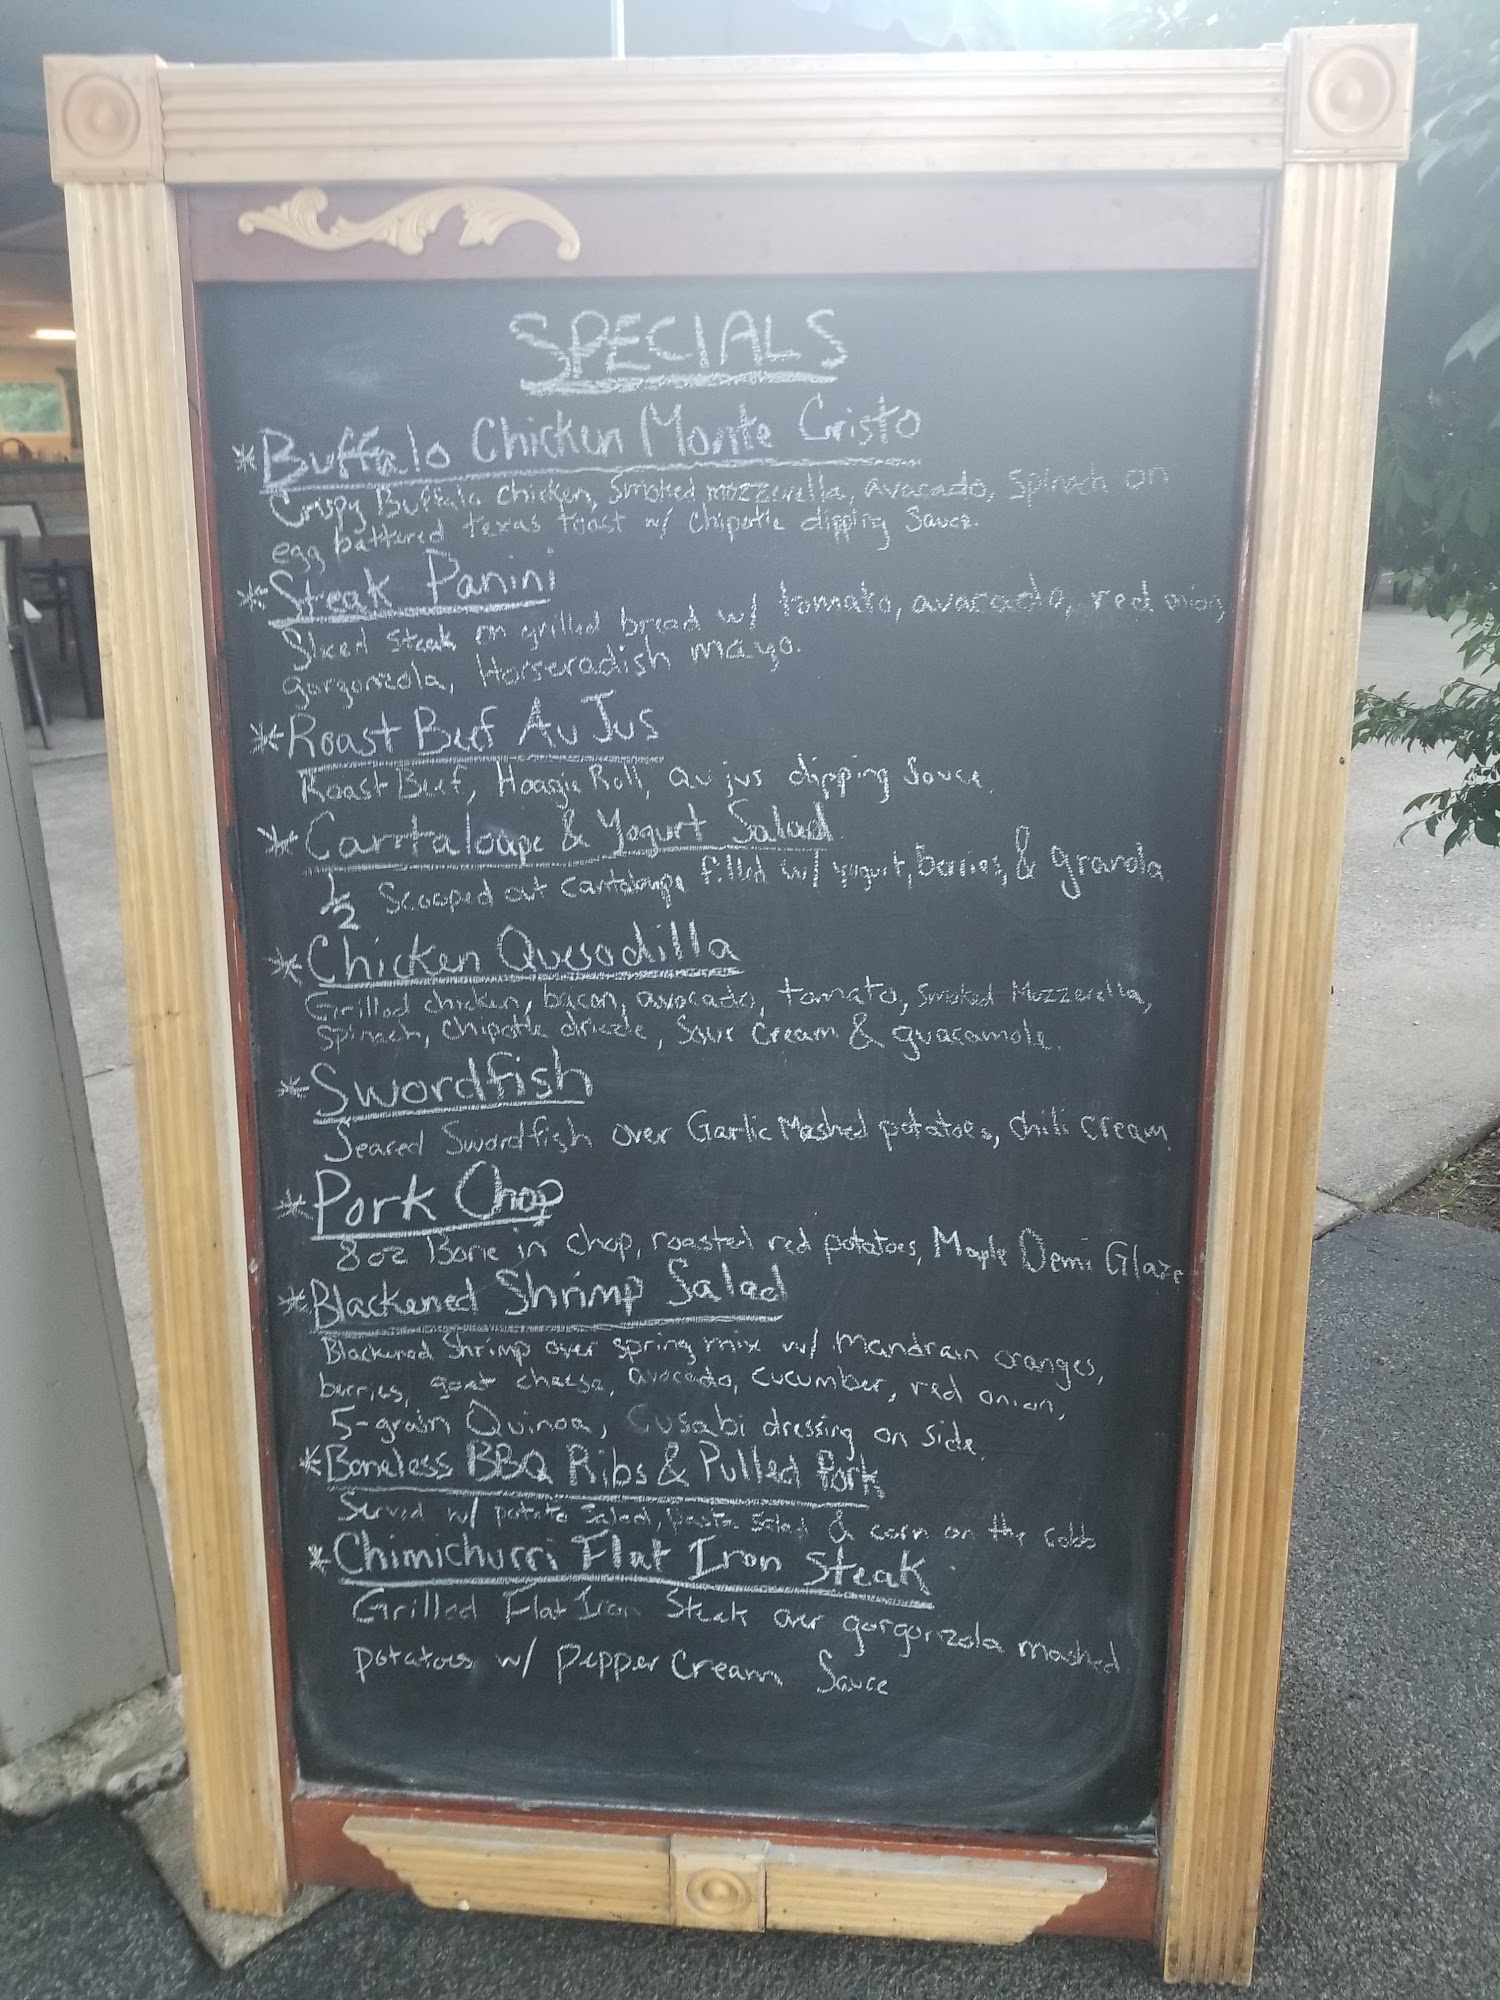 SPECIALS
*Buffalo Chicken Monte Cristo
Crispy Buffalo chicken, Smoked mozzerella, avocado, spinach on
egg battered texas toast w/ chipotle dipping sauce.
*Steak Panini
Sliced steak on grilled bread w/ tomato, avacado, red onion,
gorgonzola, Horseradish mayo.
*Roast Beef Au Jus
Roast Beef, Hoagie Roll, au jus dipping sauce.
*Cantaloupe & Yogurt Salad
1/2 Scooped out cantaloupe filled w/ yogurt, berries, & granola
*Chicken Quesadilla
Grilled chicken, bacon, avocado, tomato, smoked Mozzerella,
spinach, chipotle drizzle, Sour Cream & guacamole.
*Swordfish
Seared Swordfish over Garlic Mashed potatoes, chili cream.
*Pork Chop
8oz Bone in chop, roasted red potatoes, Maple Demi Glaze
*Blackened Shrimp Salad
Blackened Shrimp over spring mix w/ Mandrain oranges,
berries, goat cheese, avocado, cucumber, red onion,
5-grain Quinoa, Cusabi dressing on side.
*Boneless BBQ Ribs & Pulled Pork
Served w/ potato salad, pasta salad & corn on the cobb
*Chimichurri Flat Iron Steak
Grilled Flat Iron Steak over gorgonzola mashed
potatoes w/ Pepper Cream Sauce